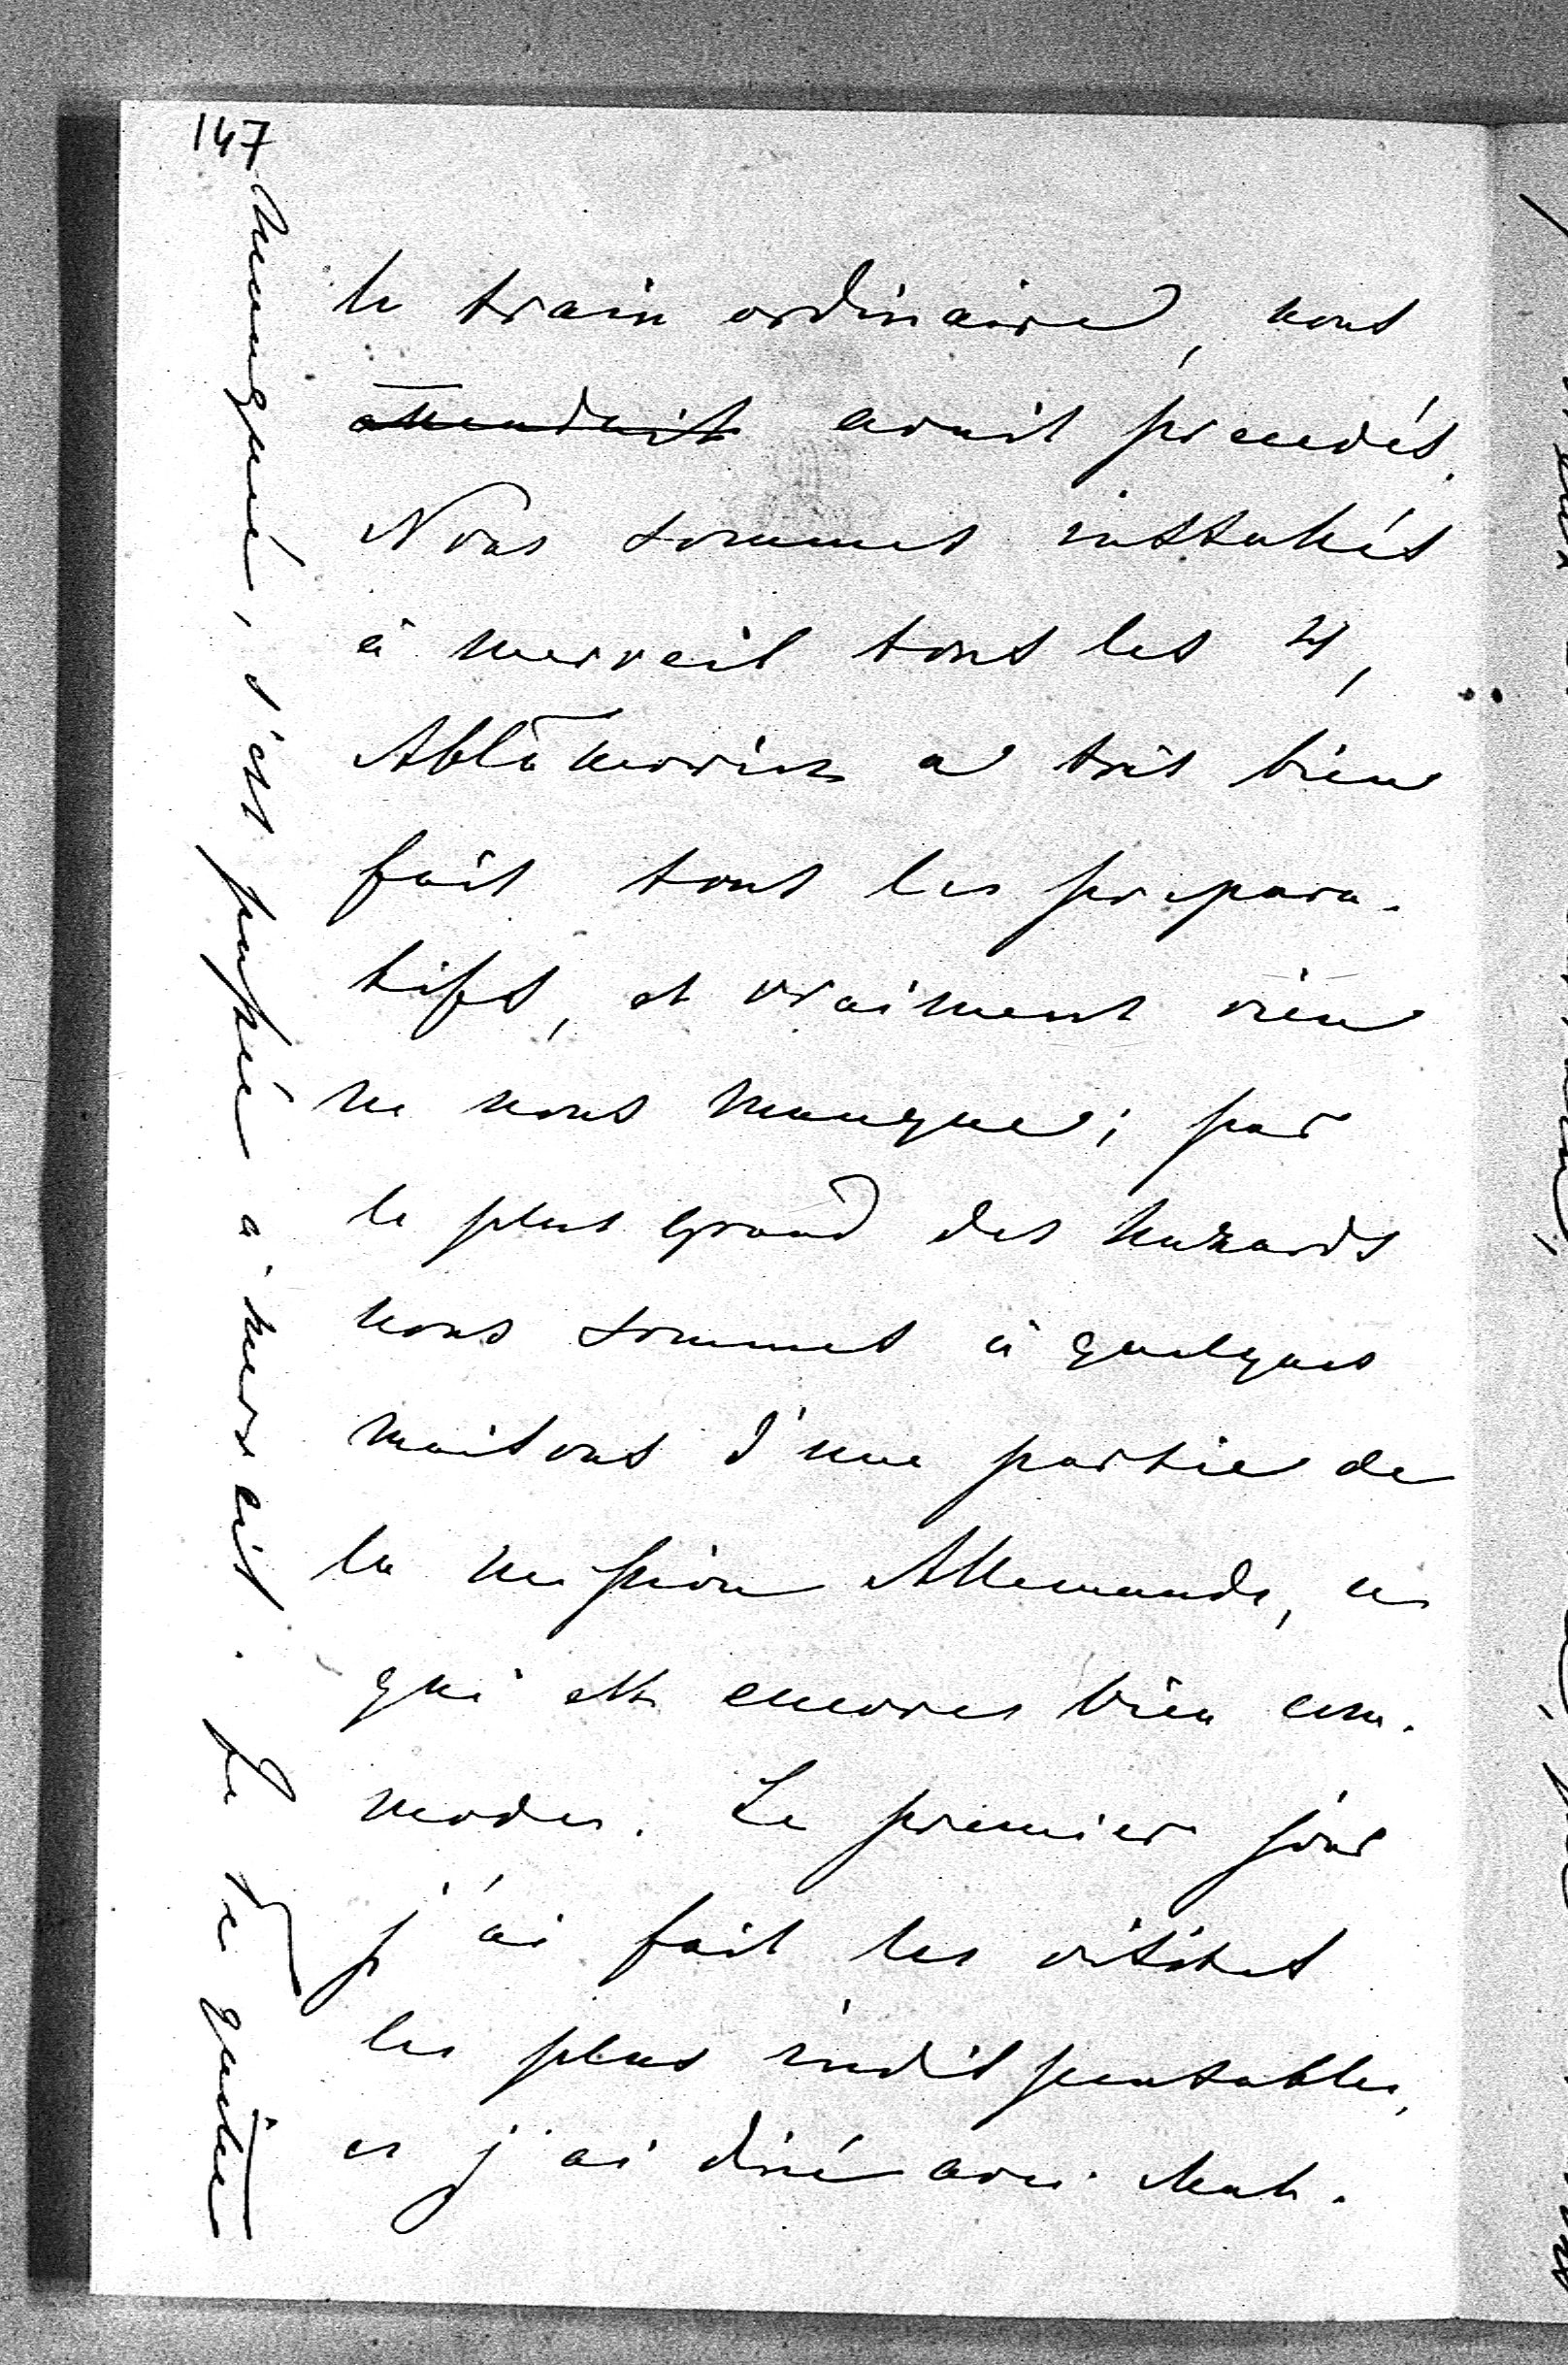 147
le train ordinaire, nous
attendait avait precedés.
Nous sommes installés
à merveil tous les 4,
a très bien
fait tous les prepara-
tifs, et vraiment rien
ne nous manque; par
le plus grand des hazards
nous sommes à quelques
maisons d'une partie de
la mission Allemande, ce
qui est encores bien com-
modes. Le premier jour
j'ai fait les visites
les plus indispensables,
et j'ai diné avec
manqué, s'est passée à merveil. Le